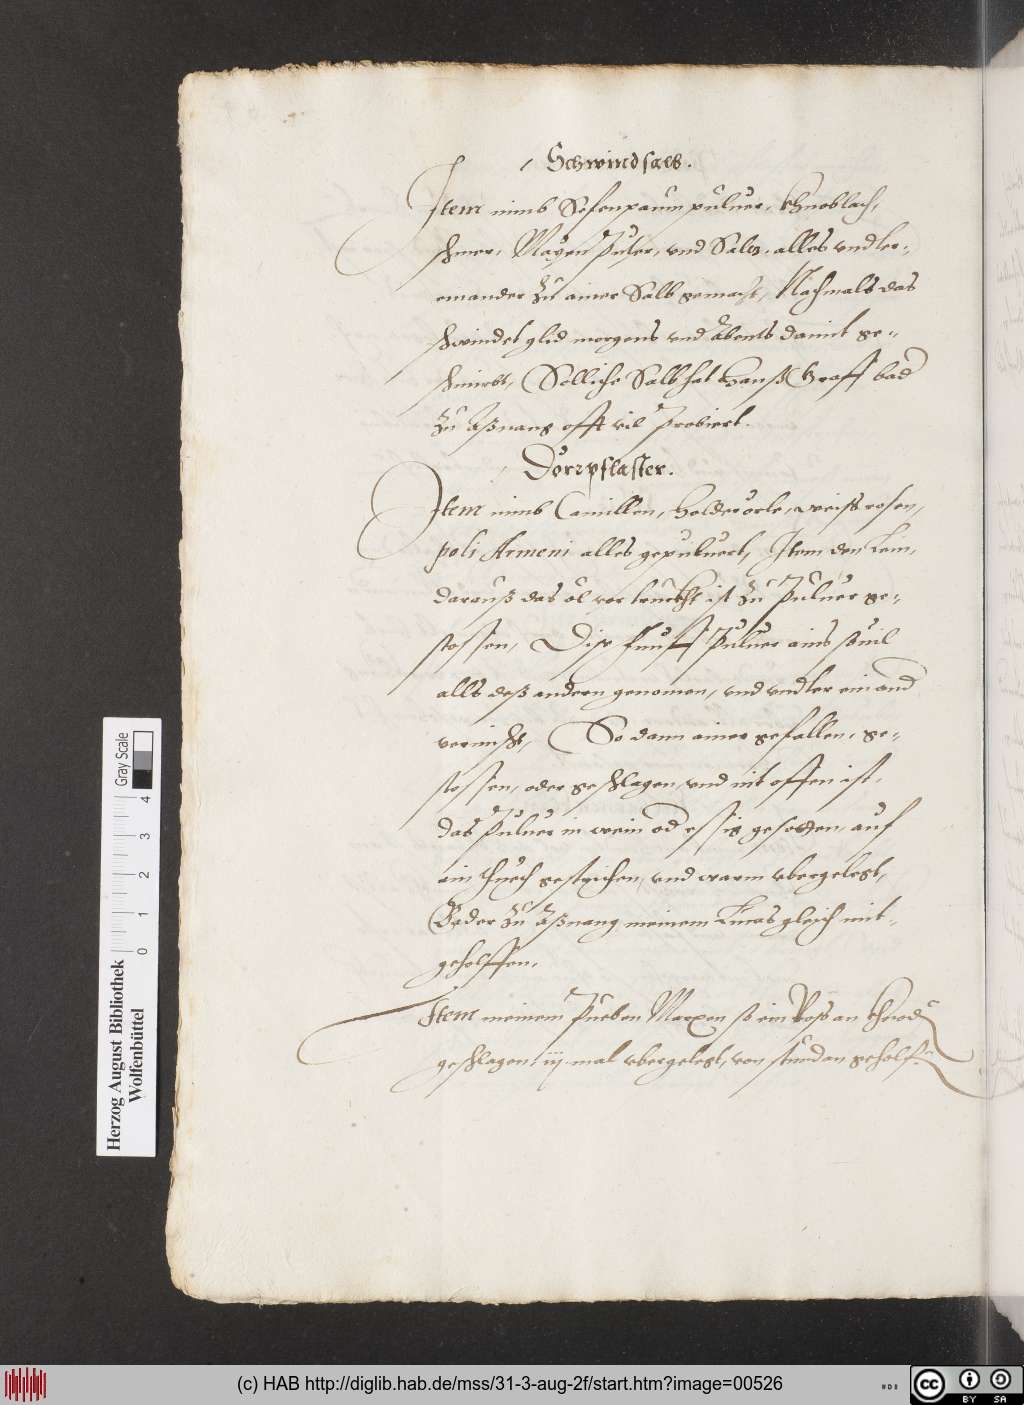 Schwindsalb.
Item nimb Sefenpaum puluer, Khnoblach,
schmer, Mayen puter, vnd Saltz, alles vndter-
einander zu ainer Salb gemacht, Nachmals das
schwindet glid morgens vnd Abents damit ge-
schmirbt, Solliche Salb hat Hanß Graff bad
zu Aßnang offt vil probiert.
Dörrpflaster.
Item nimb Camillen, Holderörle, weiss rosen,
poli Armeni alles gepuluert, Item den Lein,
darauß das öl vertruckht ist zu Puluer ge-
stossen, Dise funff Puluer ains souil
alls deß andern genomen, vnd vndter einand
vermischt, So dann ainer gefallen, ge-
stossen, oder geschlagen, vnd nit offen ist,
das Puluer in wein od essig gesotten, auf
ain thuech gestrichen, vnd warm vbergelegt,
Bader zu Aßnang meinem Lucas gleich mit
geholffen.
Item meinem Pueben Marxen so ein Ross an
geschlagen, iij mal vbergelegt, von stund an geholf
Herzog August Bibliothek
Wolfenbüttel
0 1 2 3 4
Gray Scale
(c) HAB http://diglib.hab.de/mss/31-3-aug-2f/start.htm?image=00526
cc BY SA